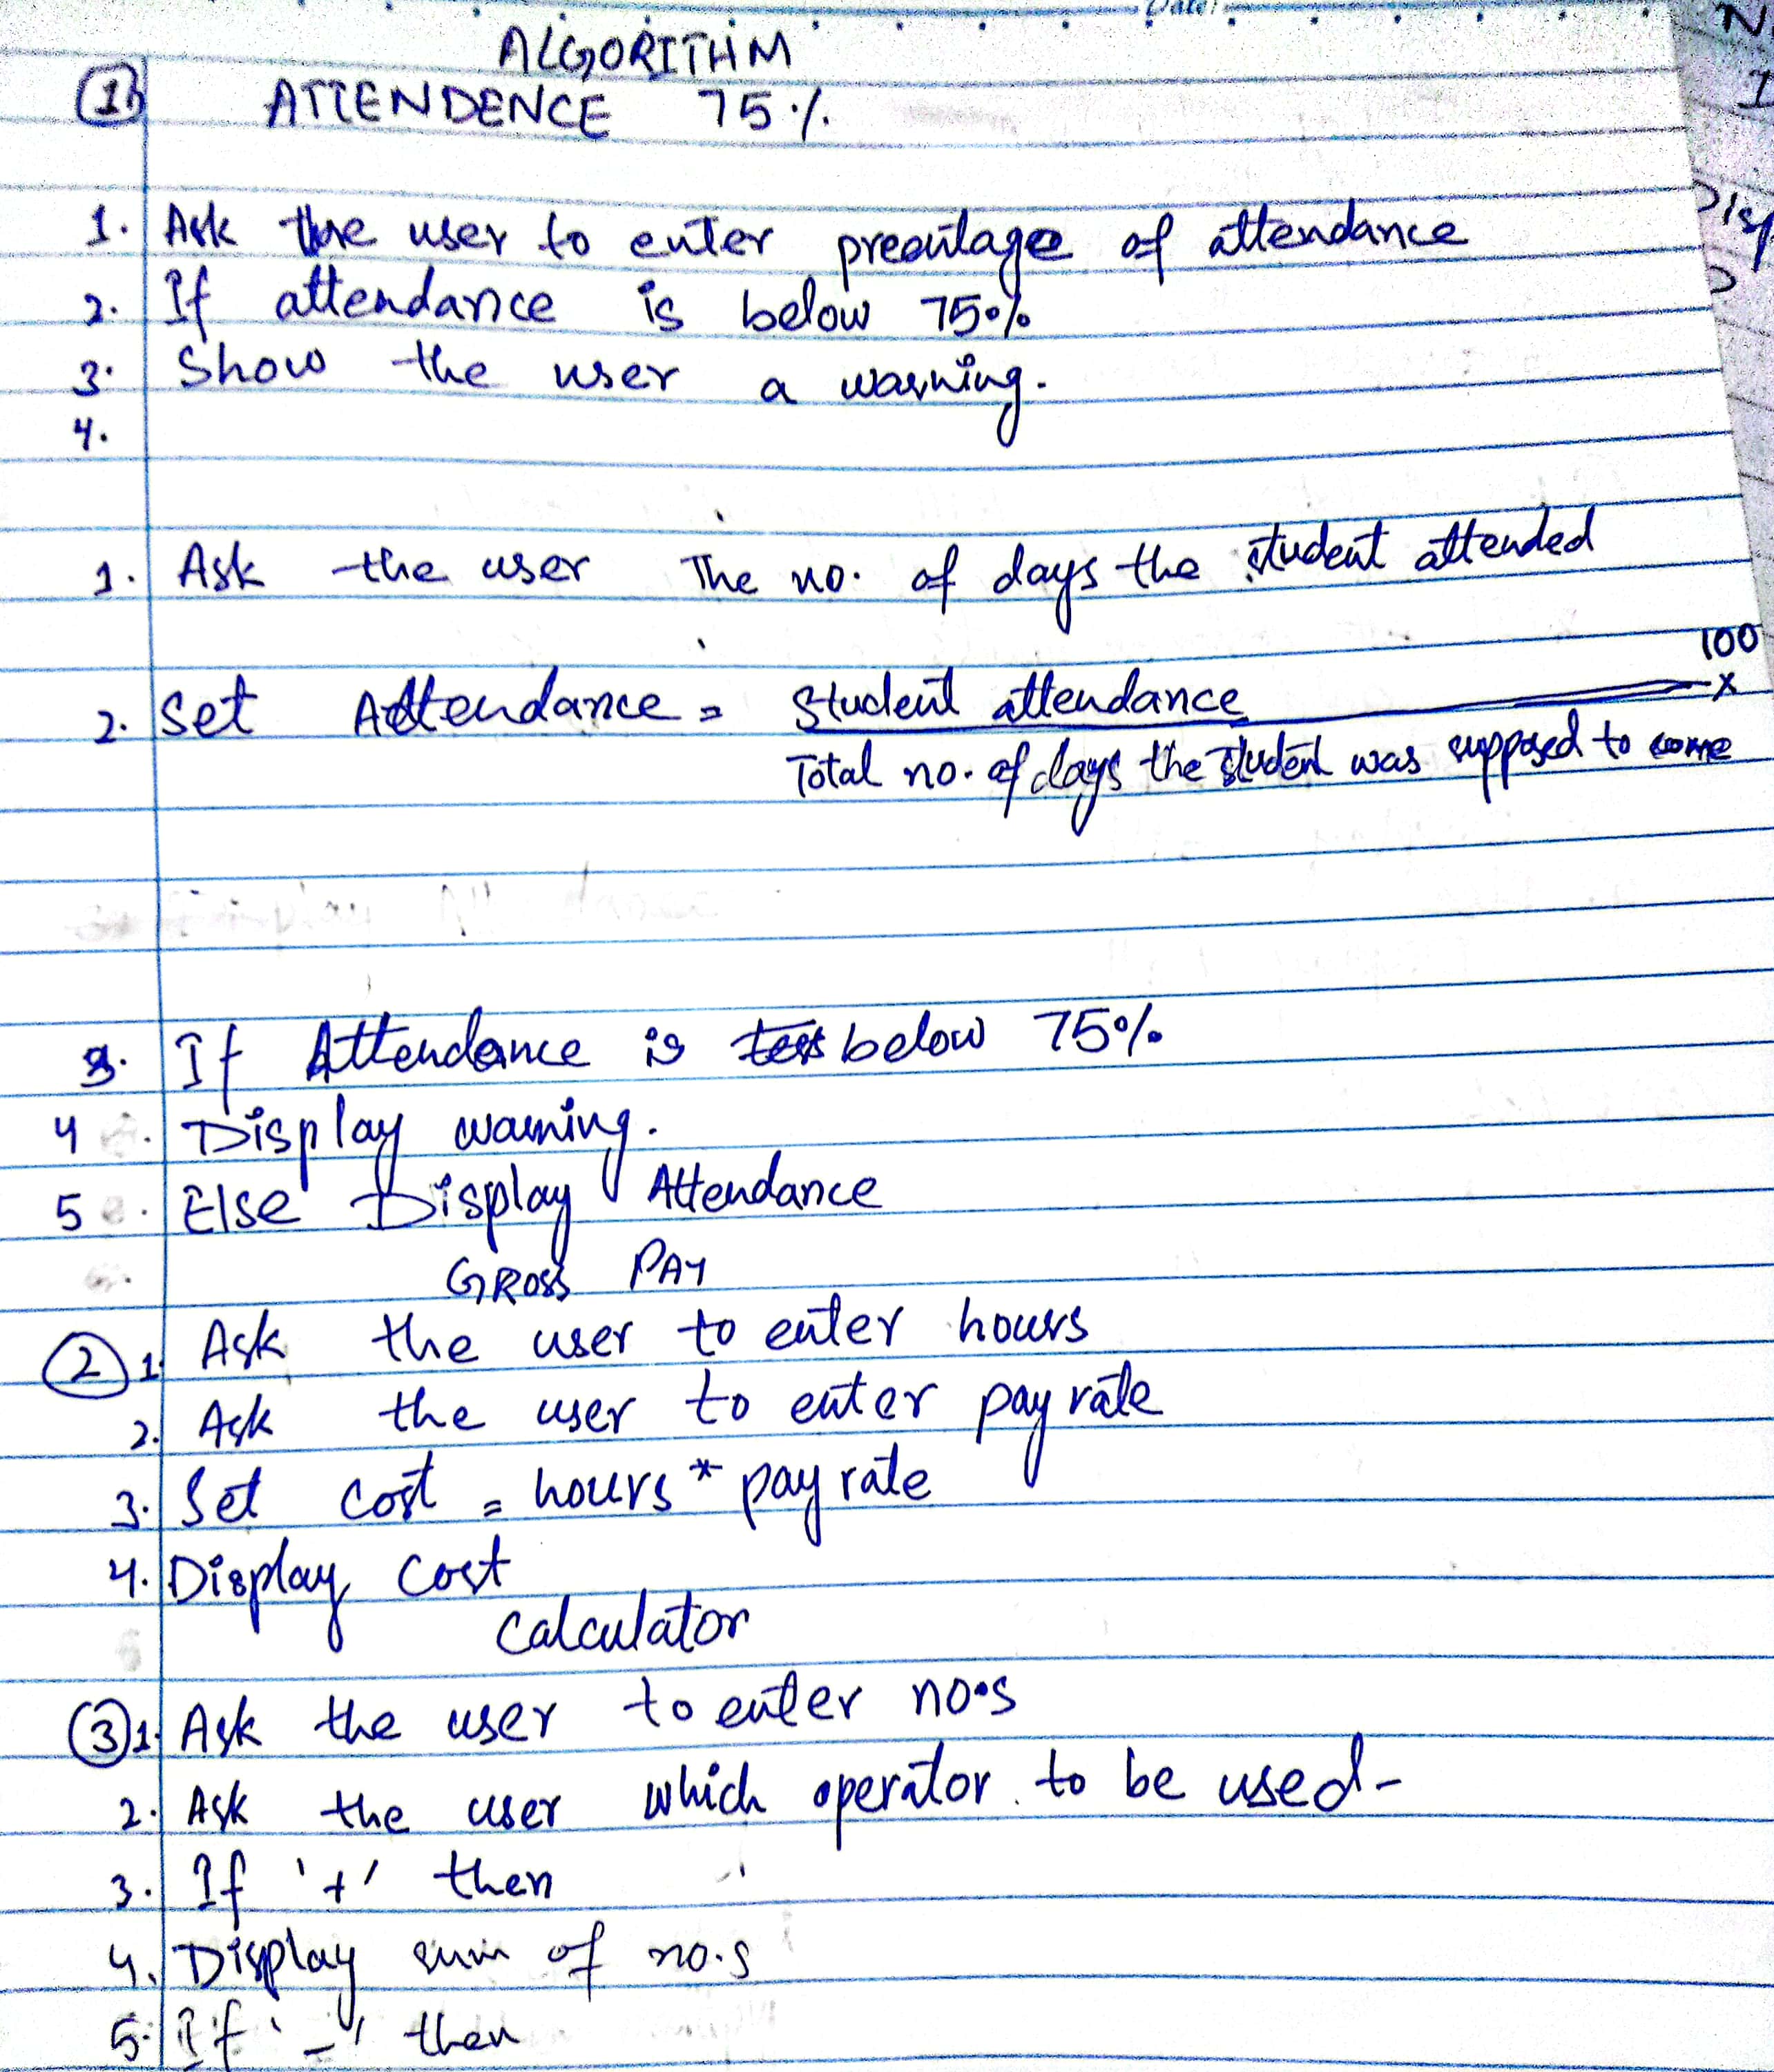 Date:
ALGORITHM
1 ATTENDENCE 75%
1. Ask the user to enter precentage of attendance
2. If attendance is below 75%
3. Show the user a warning.
4.
1. Ask the user The no. of days the student attended
2. Set Attendance = Student attendance x 100
Total no. of days the student was supposed to come
3. If Attendance is below 75%
4. Display warning.
5. Else Display Attendance
GROSS PAY
2 1. Ask the user to enter hours
2. Ask the user to enter pay rate
3. Set cost = hours * pay rate
4. Display cost
Calculator
3 1. Ask the user to enter no.s
2. Ask the user which operator to be used-
3. If '+' then
4. Display sum of no.s
5. If '-' then